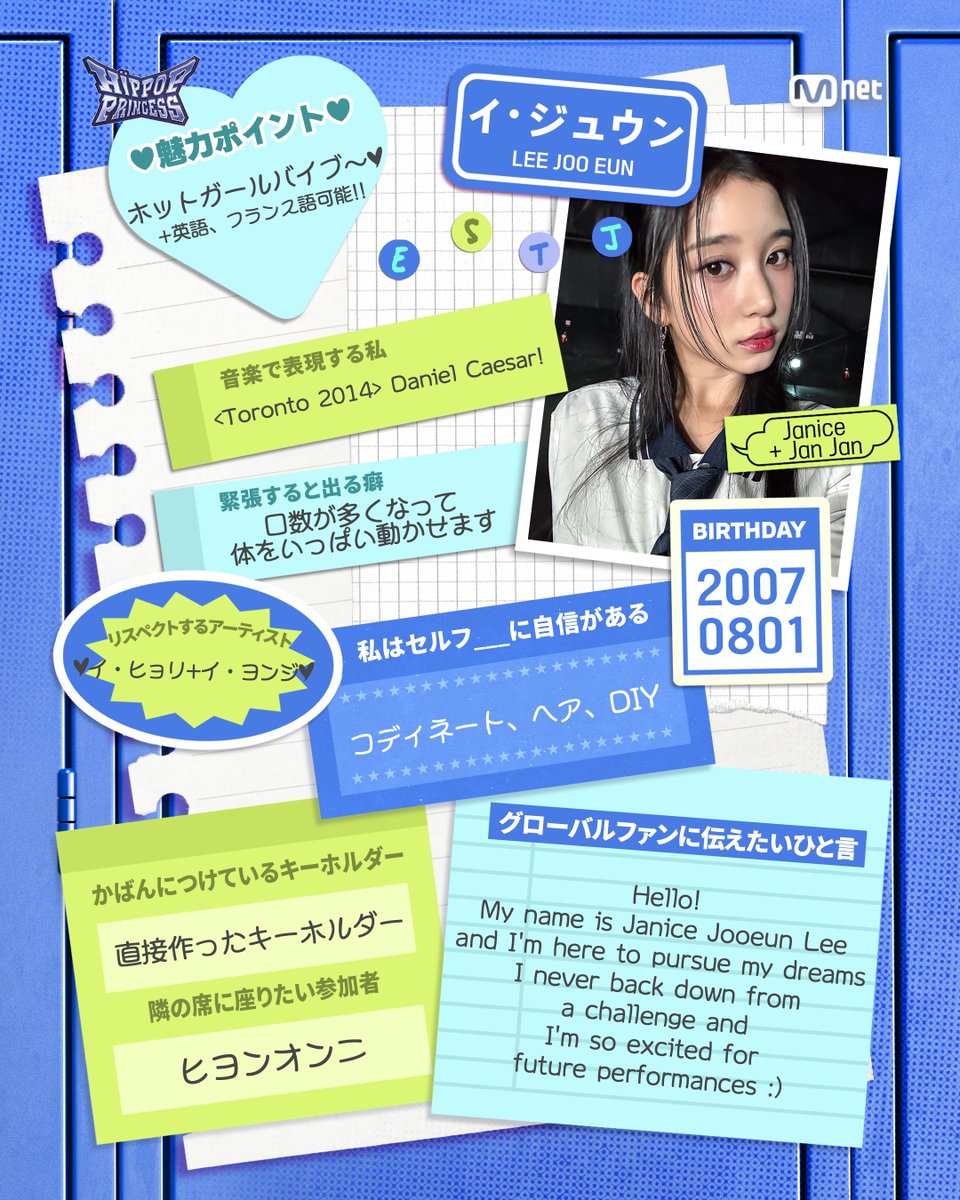 HIPPOP
PRINCESS
Mnet
♥魅力ポイント♥
ホットガールバイブ〜♥
+英語、フランス語可能!!
イ・ジュウン
LEE JOO EUN
E S T J
音楽で表現する私
<Toronto 2014> Daniel Caesar!
Janice
+ Jan Jan
緊張すると出る癖
口数が多くなって
体をいっぱい動かせます
BIRTHDAY
2007
0801
リスペクトするアーティスト
♥イ・ヒョリ+イ・ヨンジ♥
私はセルフ___に自信がある
コディネート、ヘア、DIY
かばんにつけているキーホルダー
直接作ったキーホルダー
隣の席に座りたい参加者
ヒヨンオンニ
グローバルファンに伝えたいひと言
Hello!
My name is Janice Jooeun Lee
and I'm here to pursue my dreams
I never back down from
a challenge and
I'm so excited for
future performances :)